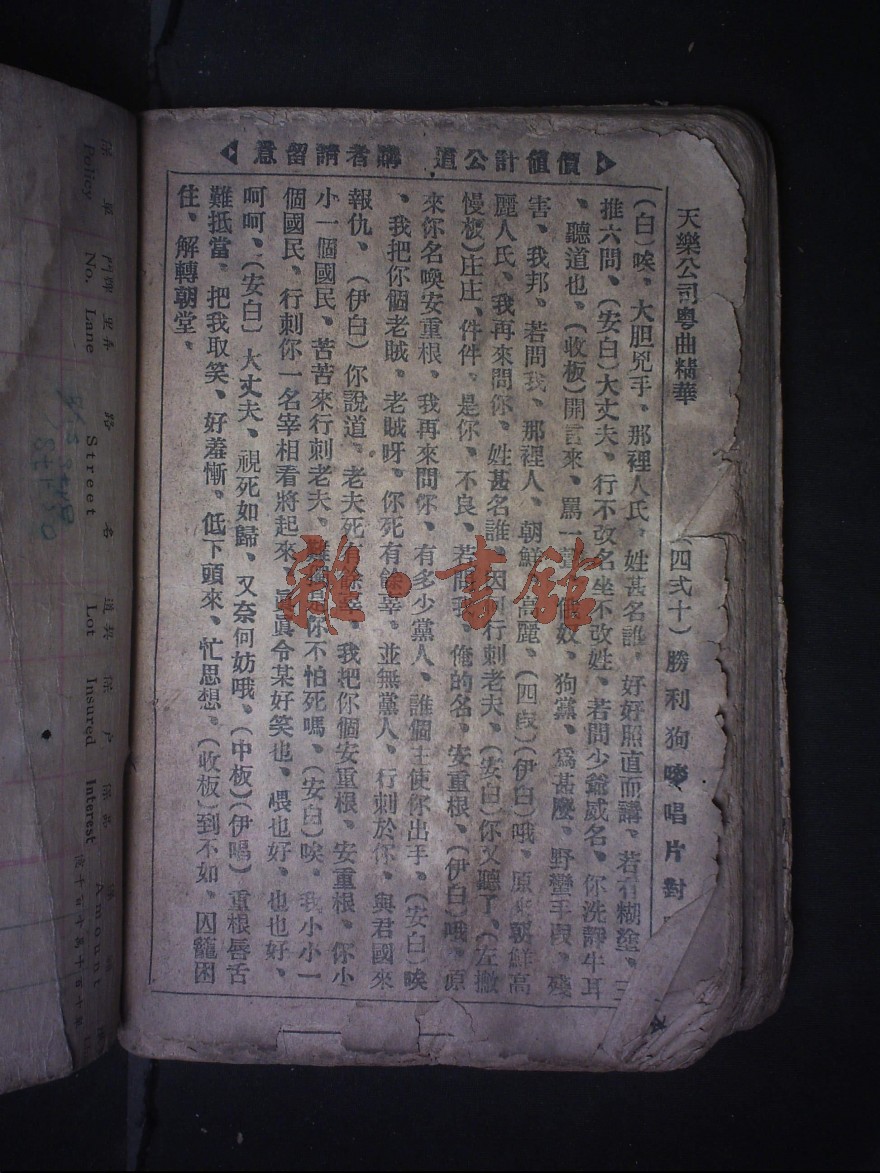 價値計公道 購者請留意
天樂公司粵曲精華
(四弍十)勝利狗嘜唱片對
(白)唉、大胆兇手、那裡人氏、姓甚名誰、好好照直而講、若有糊塗、三
推六問、(安白)大丈夫、行不改名坐不改姓、若問少爺威名、你洗靜牛耳
、聽道也、(收板)開言來、罵一聲、奴、狗黨、爲甚麽、野蠻手段、殘
害、我邦、若問我、那裡人、朝鮮、高麗、(四段)(伊白)哦、原來朝鮮高
麗人氏、我再來問你、姓甚名誰、因何行刺老夫、(安白)你又聽了、(左撇
慢板)庄庄、件件、是你、不良、若問我、俺的名、安重根、(伊白)哦、原
來你名喚安重根、我再來問你、有多少黨人、誰個主使你出手、(安白)唉
、我把你個老賊、老賊呀、你死有餘辜、並無黨人、行刺於你、與君國來
報仇、(伊白)你說道、老夫死有餘辜、我把你個安重根、安重根、你小
小一個國民、苦苦來行刺老夫、難道是你不怕死嗎、(安白)唉、我小小一
個國民、行刺你一名宰相看將起來、眞眞令某好笑也、喂也好、也也好、
呵呵、(安白)大丈夫、視死如歸、又奈何妨哦、(中板)(伊唱)重根唇舌
難抵當、把我取笑、好羞慚、低下頭來、忙思想、(收板)到不如、囚籠困
住、解轉朝堂、
雜·書館
保單 門牌 里弄 路名 道與 保戶
Policy No. Lane Street Lot Insured Interest Amount